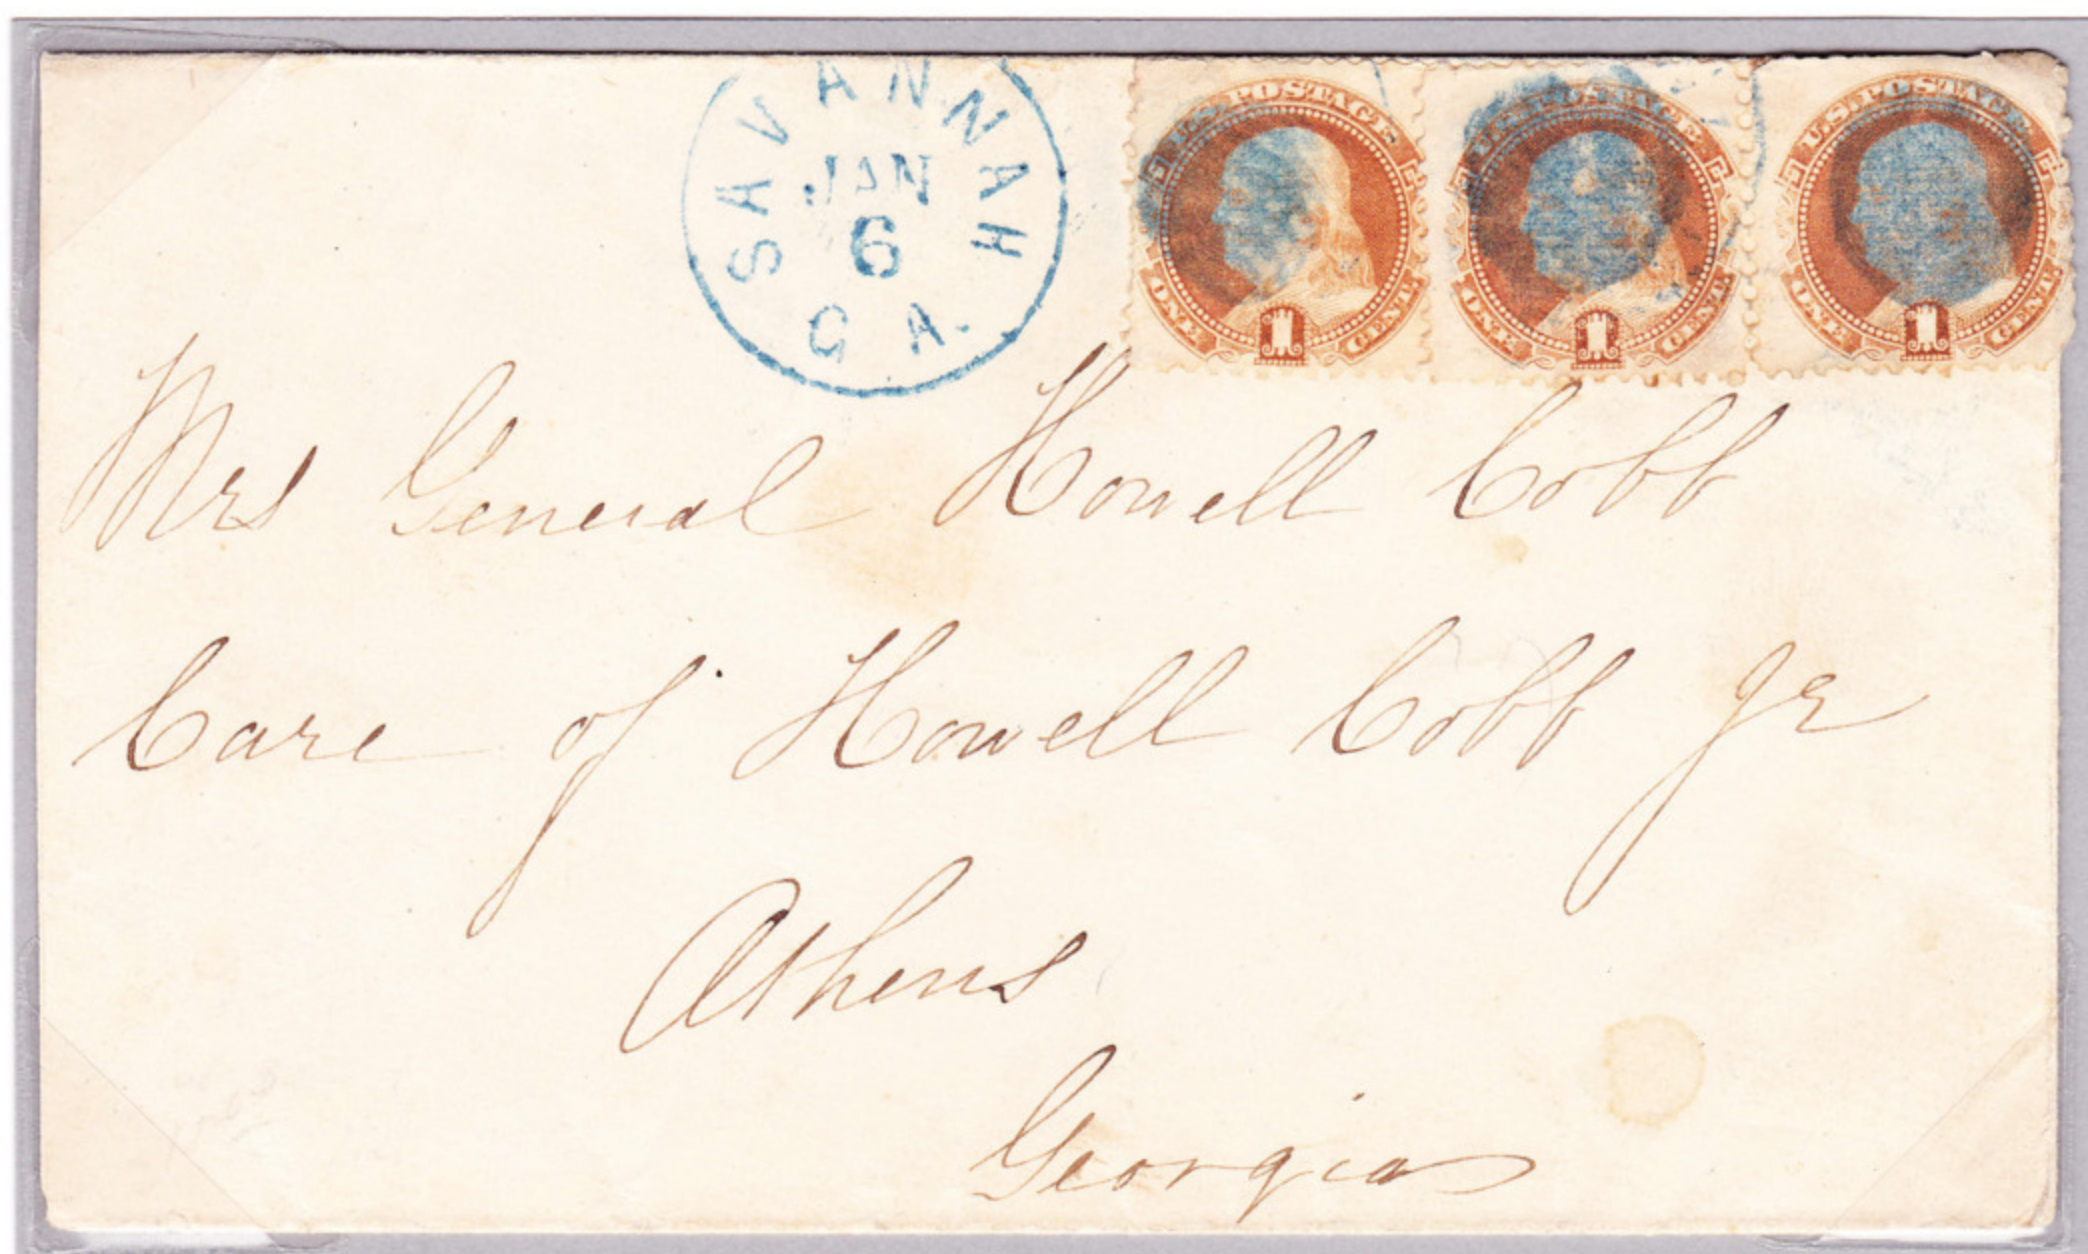 SAVANNAH
JAN
6
GA.
U.S. POSTAGE
ONE 1 CENT
U.S. POSTAGE
ONE 1 CENT
U.S. POSTAGE
ONE 1 CENT
Mrs General Howell Cobb
Care of Howell Cobb Jr
Athens
Georgia